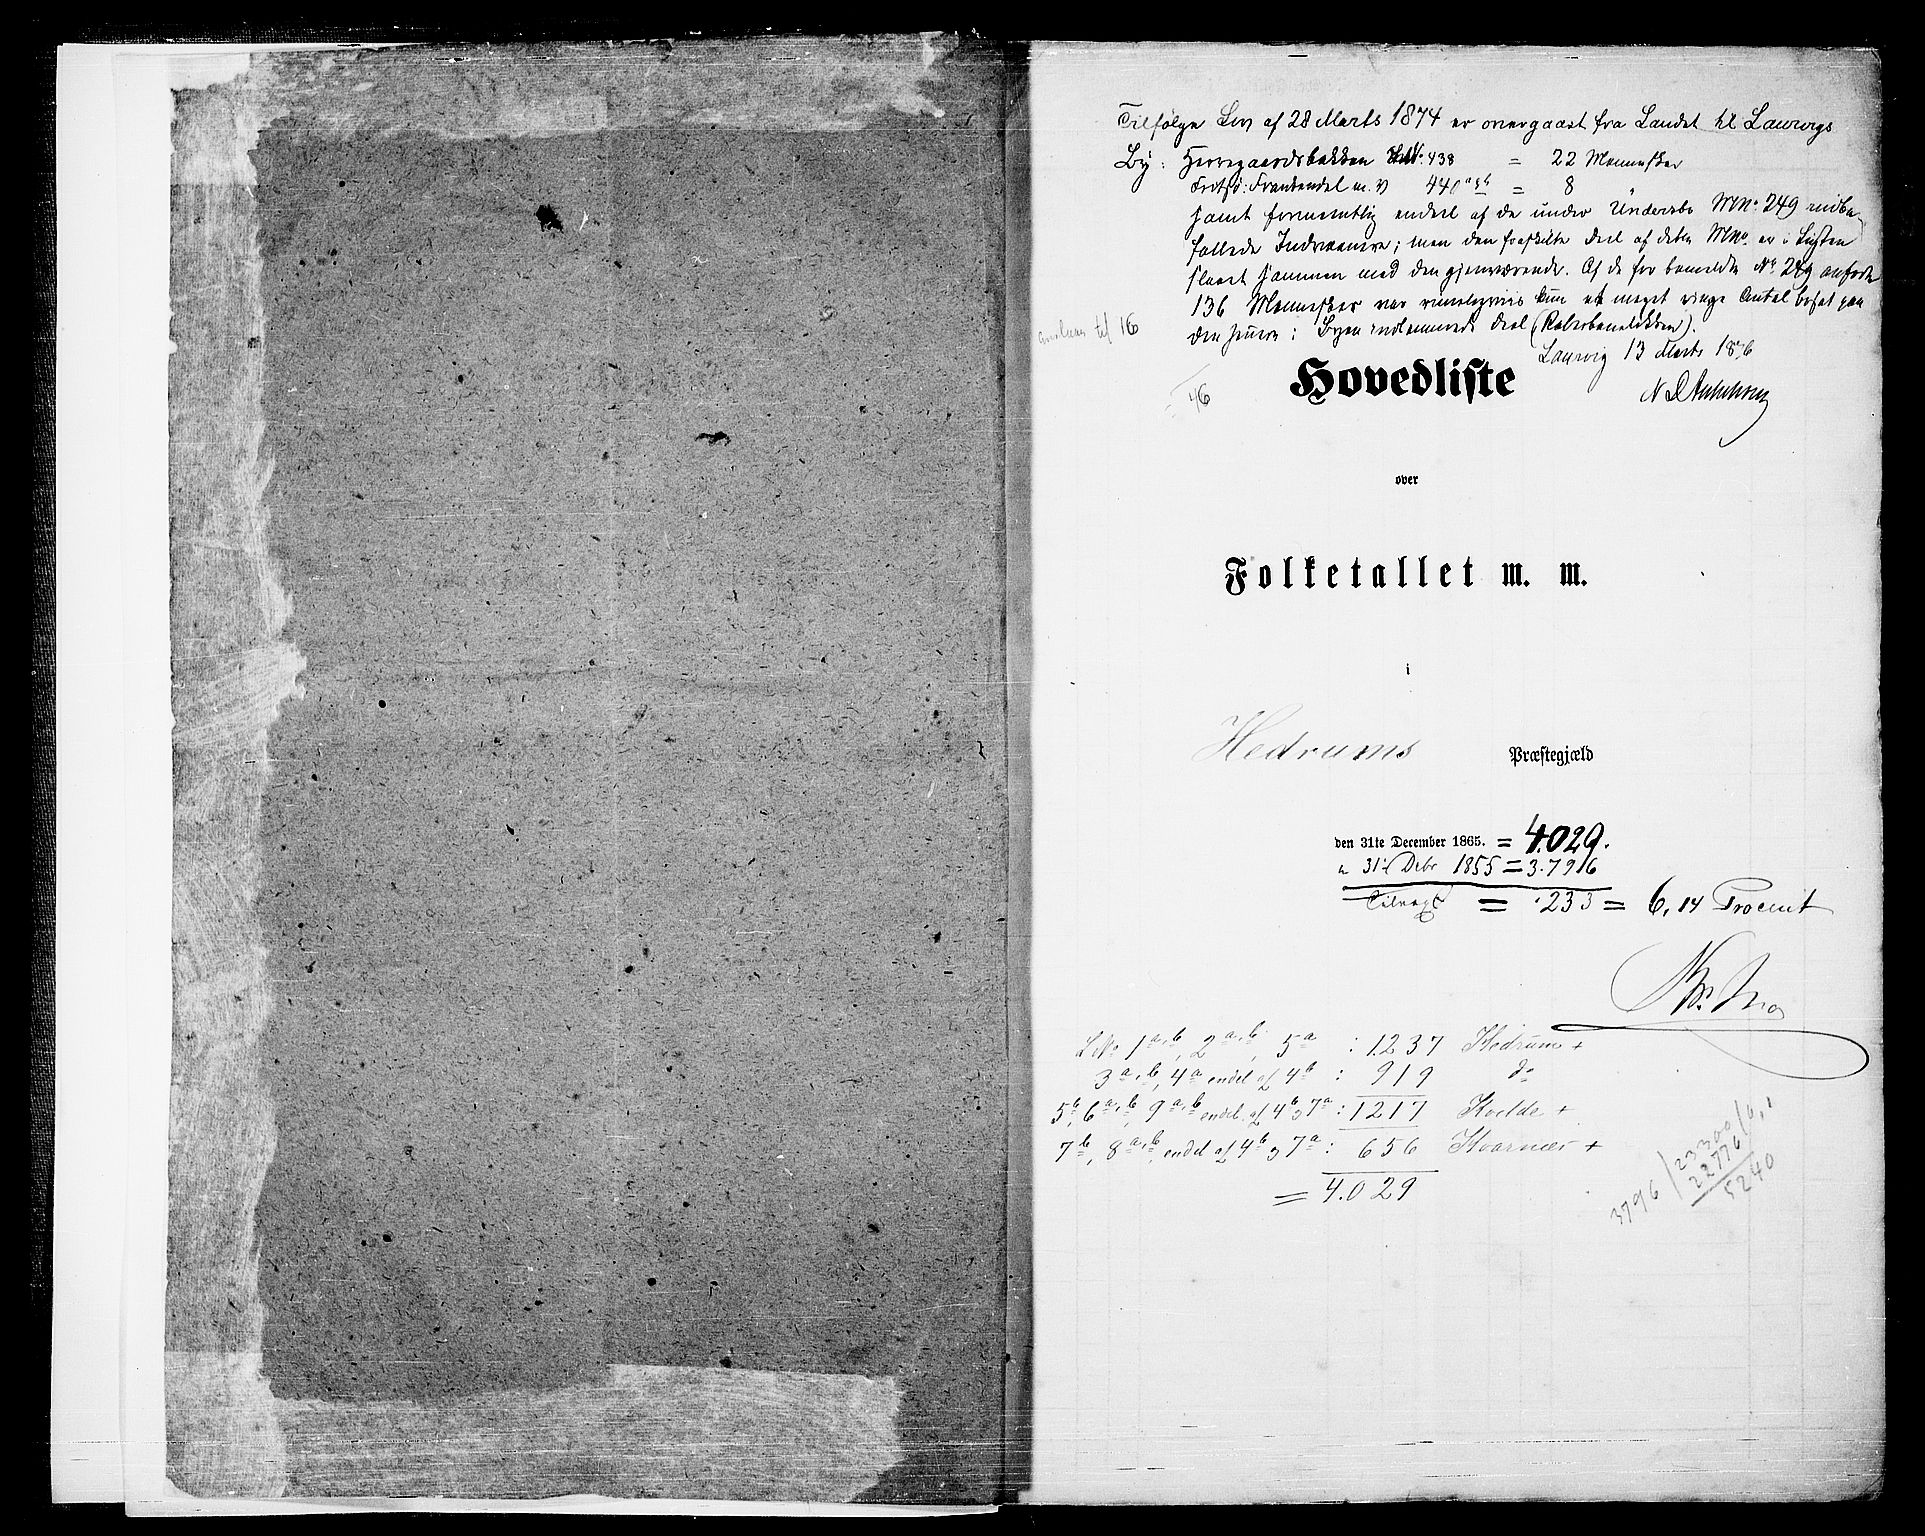 Tilfølge Lov af 28 Marts 1874 er overgaaet fra Landet til Laurvigs
By: Herregaardsbakken MN: 438 = 22 Mennesker
m. V 440 a & b = 8
samt formentlig endeel af de under Undersbo MNo. 249 indbe-
fattede Indvaanere; men den fraskilte Deel af dette MNo. er i Listen
slaaet sammen med den gjenværende. Af de for bemeldte No. 249 anførte
136 Mennesker var rimeligviis kun et meget ringe Antal bosat paa
den senere i Byen indlemmede Deel (Rebslabaneløkken).
Laurvig 13 Marts 1876
til 16
46
Hovedliste
over
Folketallet m. m.
i
Hedrums Præstegjæld
den 31te December 1865. = 4.029.
" 31te Decbr 1855 = 3.796
Tilvæxt = 233 = 6,14 Procent
LNo 1 a, b, 2 a, b, 5 a : 1237 Hedrum +
3 a, b, 4 a endel af 4 b : 919 do
5 b, 6 a, b, 9 a, b endel af 4 b & 7 a : 1217 Kvelde +
7 b, 8 a, b, endel af 4 b & 7 a : 656 Hvarnæs +
= 4.029
3796 / 23300 / 6,1
22776
5240